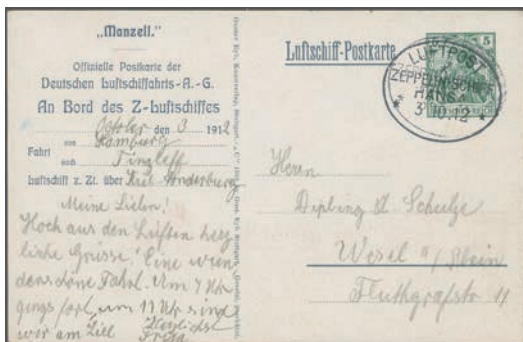 „Manzell.“
Offizielle Postkarte der
Deutschen Luftschiffahrts-A.-G.
An Bord des Z-Luftschiffes
October den 3 1912
Fahrt von Hamburg
nach
Luftschiff z. Zt. über Kiel Sonderburg
Meine Lieben!
Hoch aus den Lüften herz
liche Grüsse! Eine wun
derschöne Fahrt. Um 7 Uhr
gings fort, um 11 Uhr sind
wir am Ziel Herzlichst
Luftschiff-Postkarte
5
LUFTPOST
ZEPPELIN-SCHIFF
HANSA
3.10.12
Herrn
Dipl Ing Schulze
Wesel a/Rhein
Fluthgrafstr 11